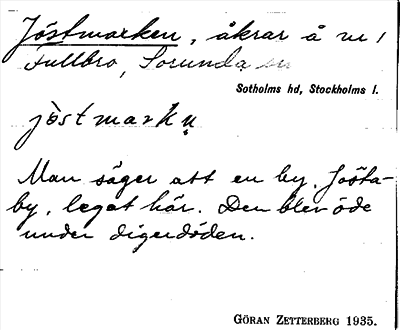 Jöstmarken, åkrar å nr 1
Fullbro, Sorunda sn
Sotholms hd, Stockholms l.
jö̀stmarkn̥
Man säger att en by, Jösta-
by, legat här. Den blev öde
under digerdöden.
GÖRAN ZETTERBERG 1935.